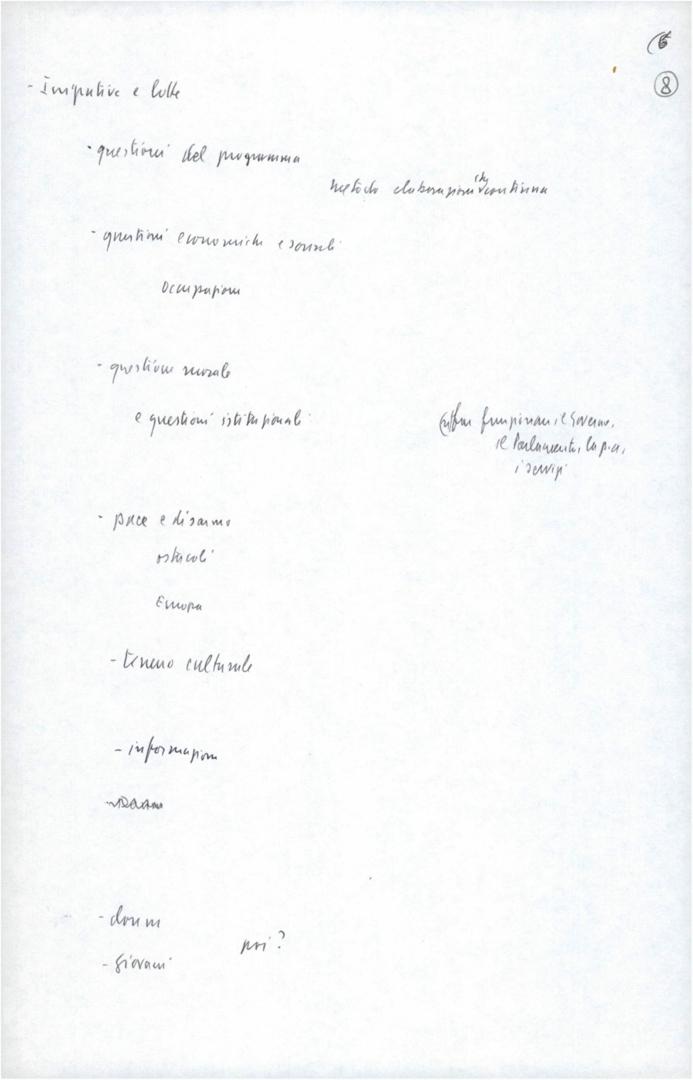 6
8
- Iniziative e lotte
- questioni del programma
metodo elaborazione continua
- questioni economiche e sociali
Occupazione
- questione morale
e questioni istituzionali
funzionare il Governo,
il Parlamento, la p.a.,
i servizi
- pace e disarmo
ostacoli
Europa
- terreno culturale
- informazione
- donne
poi?
- Giovani